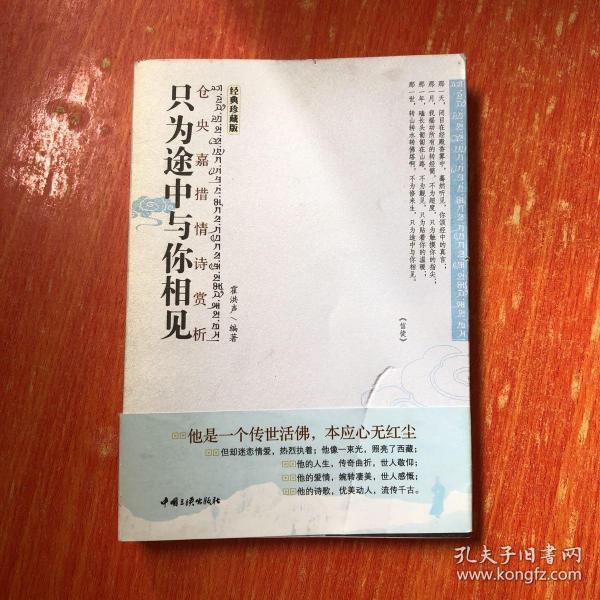 经典珍藏版
只为途中与你相见
仓央嘉措情诗赏析
霍洪声/编著
那一天，闭目在经殿香雾中，蓦然听见，你颂经中的真言；
那一月，我摇动所有的转经筒，不为超度，只为触摸你的指尖；
那一年，磕长头匍匐在山路，不为觐见，只为贴着你的温暖；
那一世，转山转水转佛塔啊，不为修来生，只为途中与你相见。
《信徒》
他是一个传世活佛，本应心无红尘
但却迷恋情爱，热烈执着；他像一束光，照亮了西藏；
他的人生，传奇曲折，世人敬仰；
他的爱情，婉转凄美，世人感慨；
他的诗歌，优美动人，流传千古。
中国三峡出版社
孔夫子旧书网
www.kongfz.com